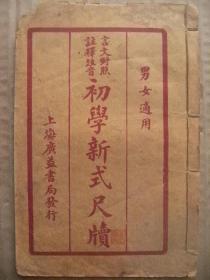 男女適用
言文對照
註釋注音
初學新式尺牘
上海廣益書局發行